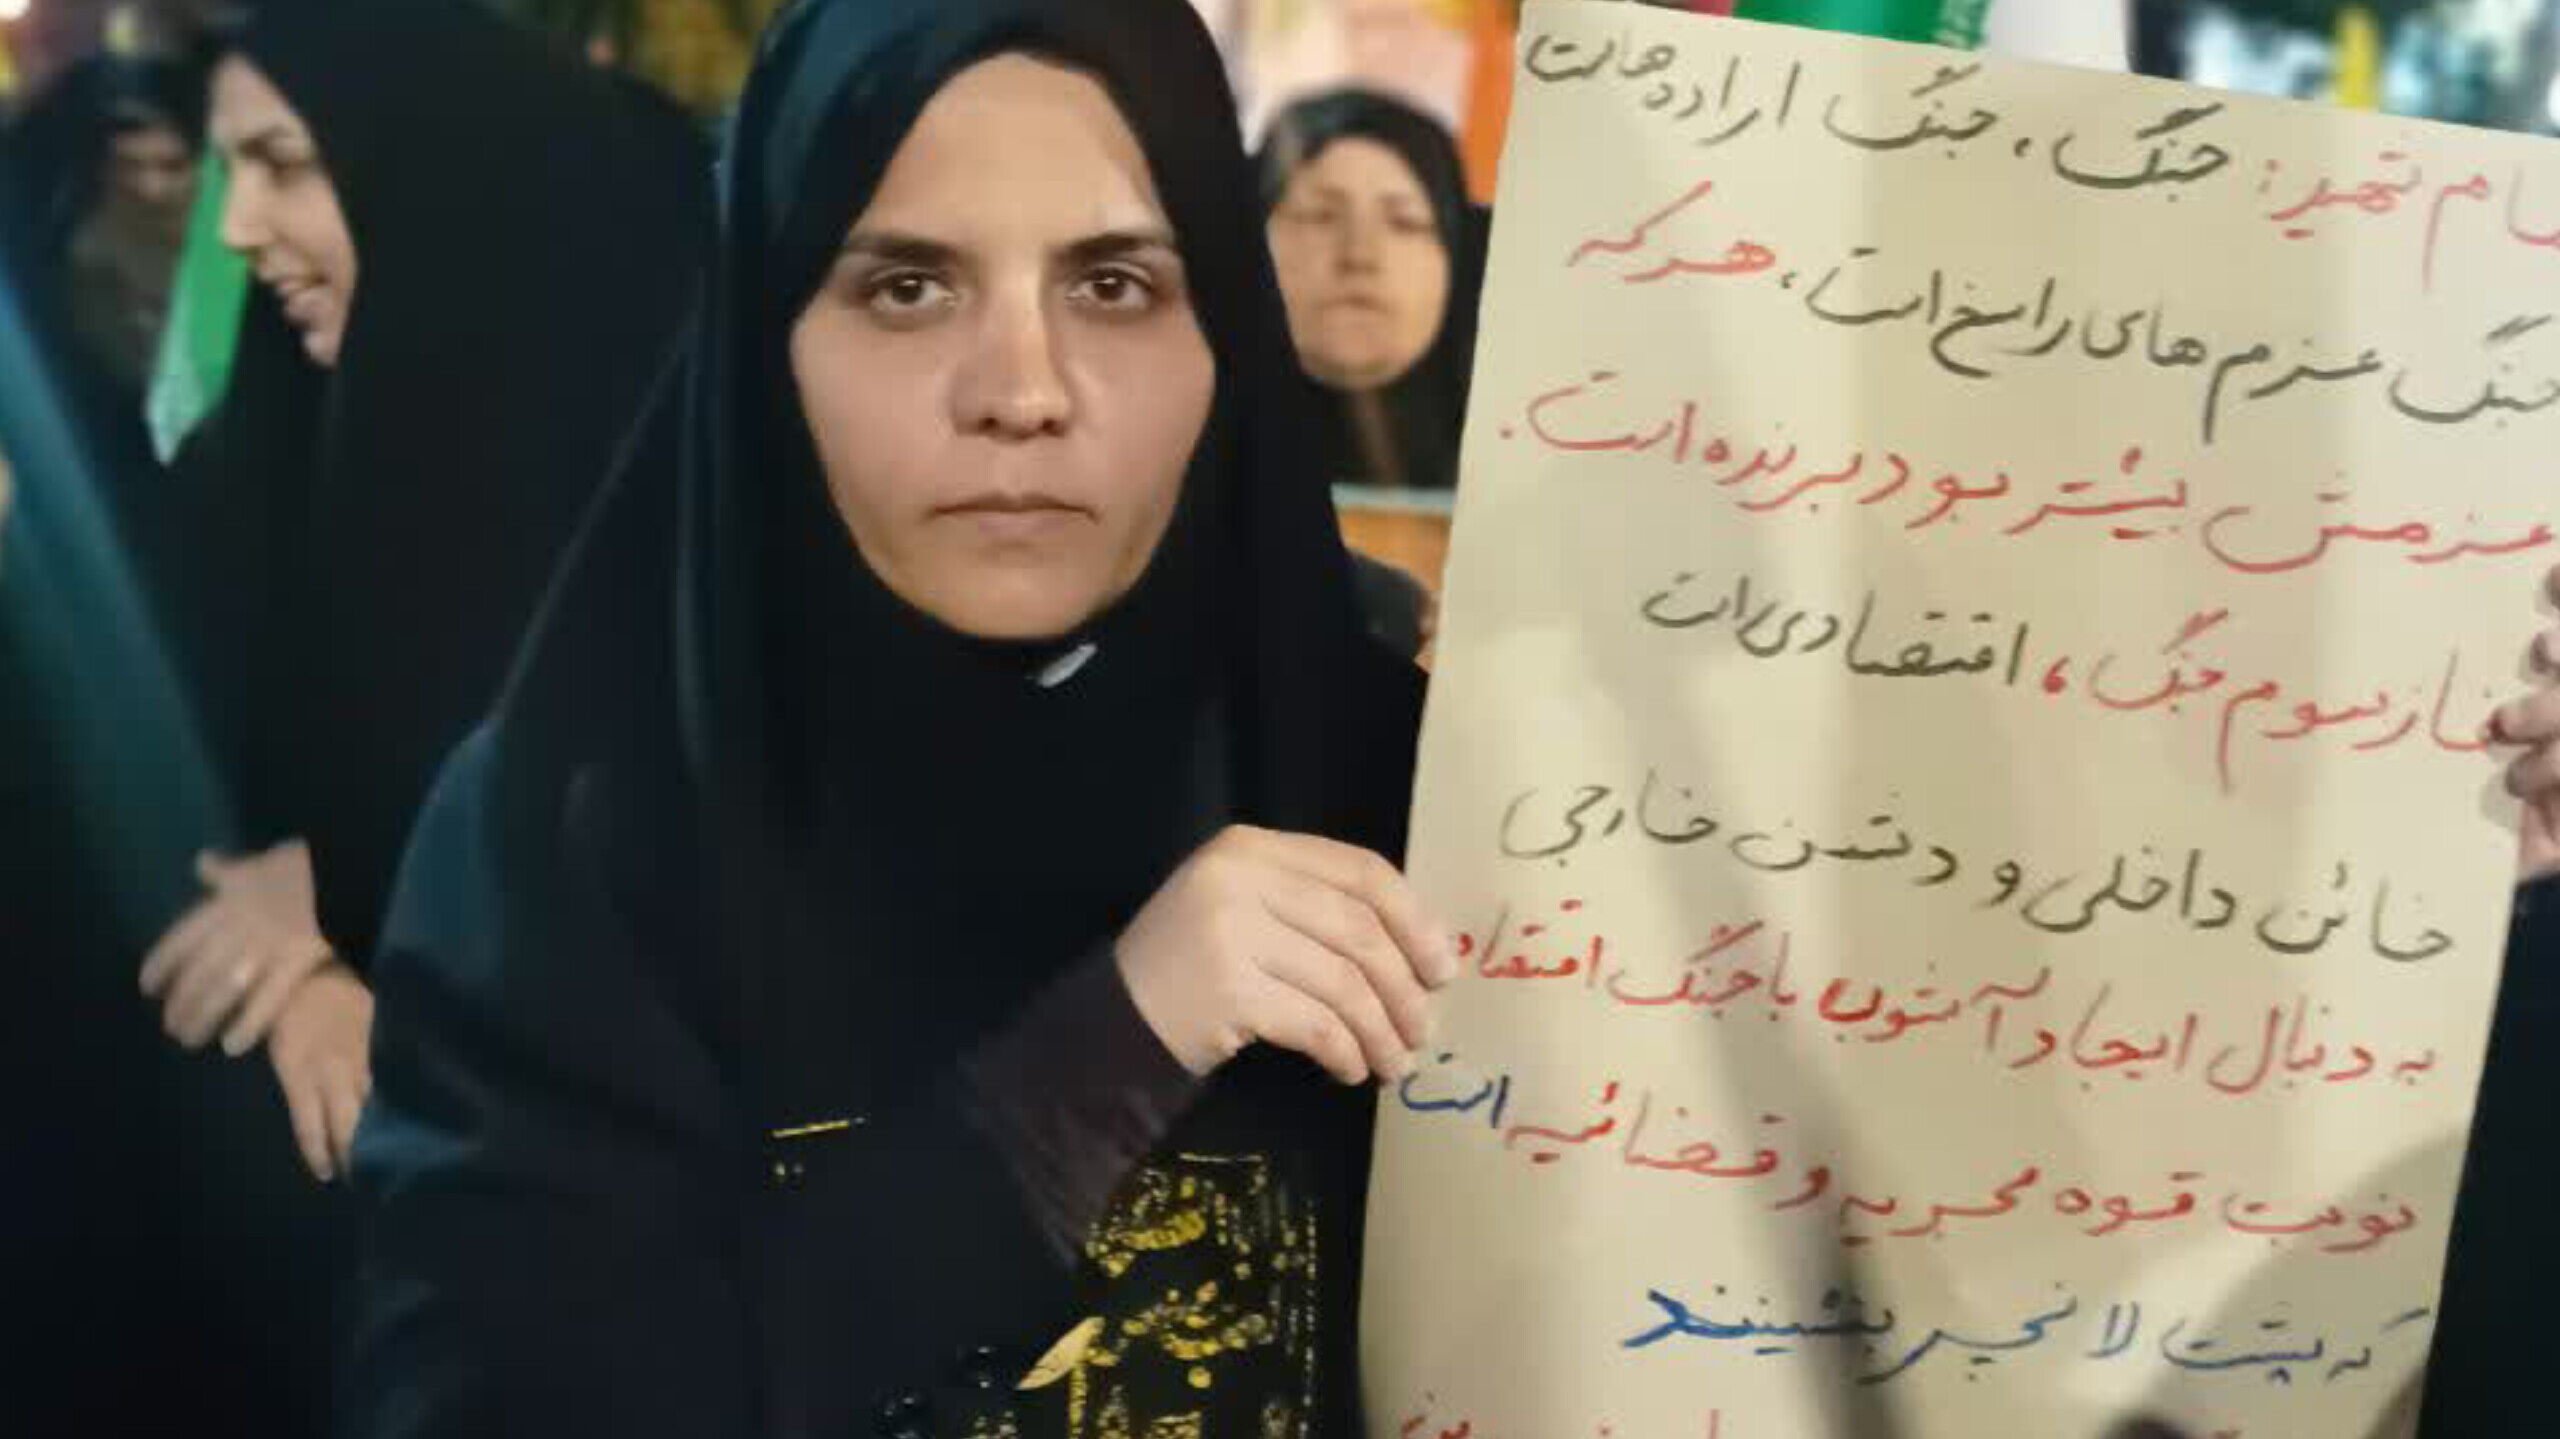 امام شهید: جنگ، جنگ اراده هاست
جنگ عزم های راسخ است، هر که
عزمش بیشتر بود برنده است.
فاز سوم جنگ، اقتصادی است
خائن داخلی و دشمن خارجی
به دنبال ایجاد آشوب با جنگ اقتصاد
نوبت قوه مجریه و قضائیه است
که پشت لانچر بنشینند